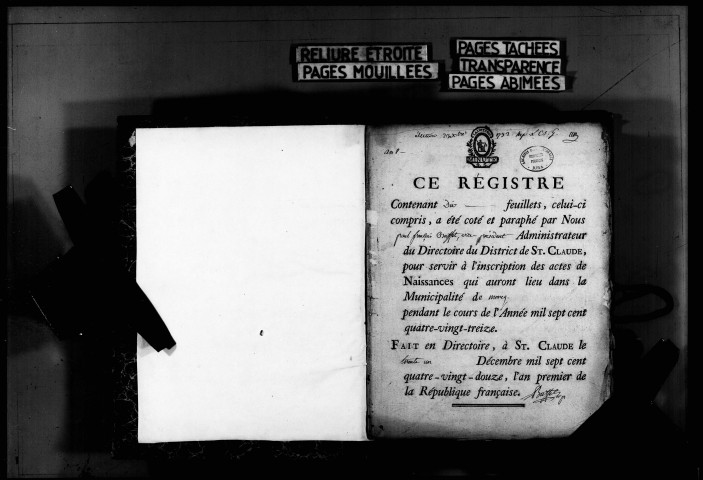 RELIURE ÉTROITE
PAGES MOUILLÉES
PAGES TACHÉES
TRANSPARENCE
PAGES ABIMÉES
CE RÉGISTRE
Contenant dix feuillets, celui-ci
compris, a été coté et paraphé par Nous
paul françois vice président Administrateur
du Directoire du District de ST. CLAUDE,
pour servir à l'inscription des actes de
Naissances qui auront lieu dans la
Municipalité de morez
pendant le cours de l'Année mil sept cent
quatre-vingt-treize.
FAIT en Directoire, à ST. CLAUDE le
trente un Décembre mil sept cent
quatre-vingt-douze, l'an premier de
la République française.